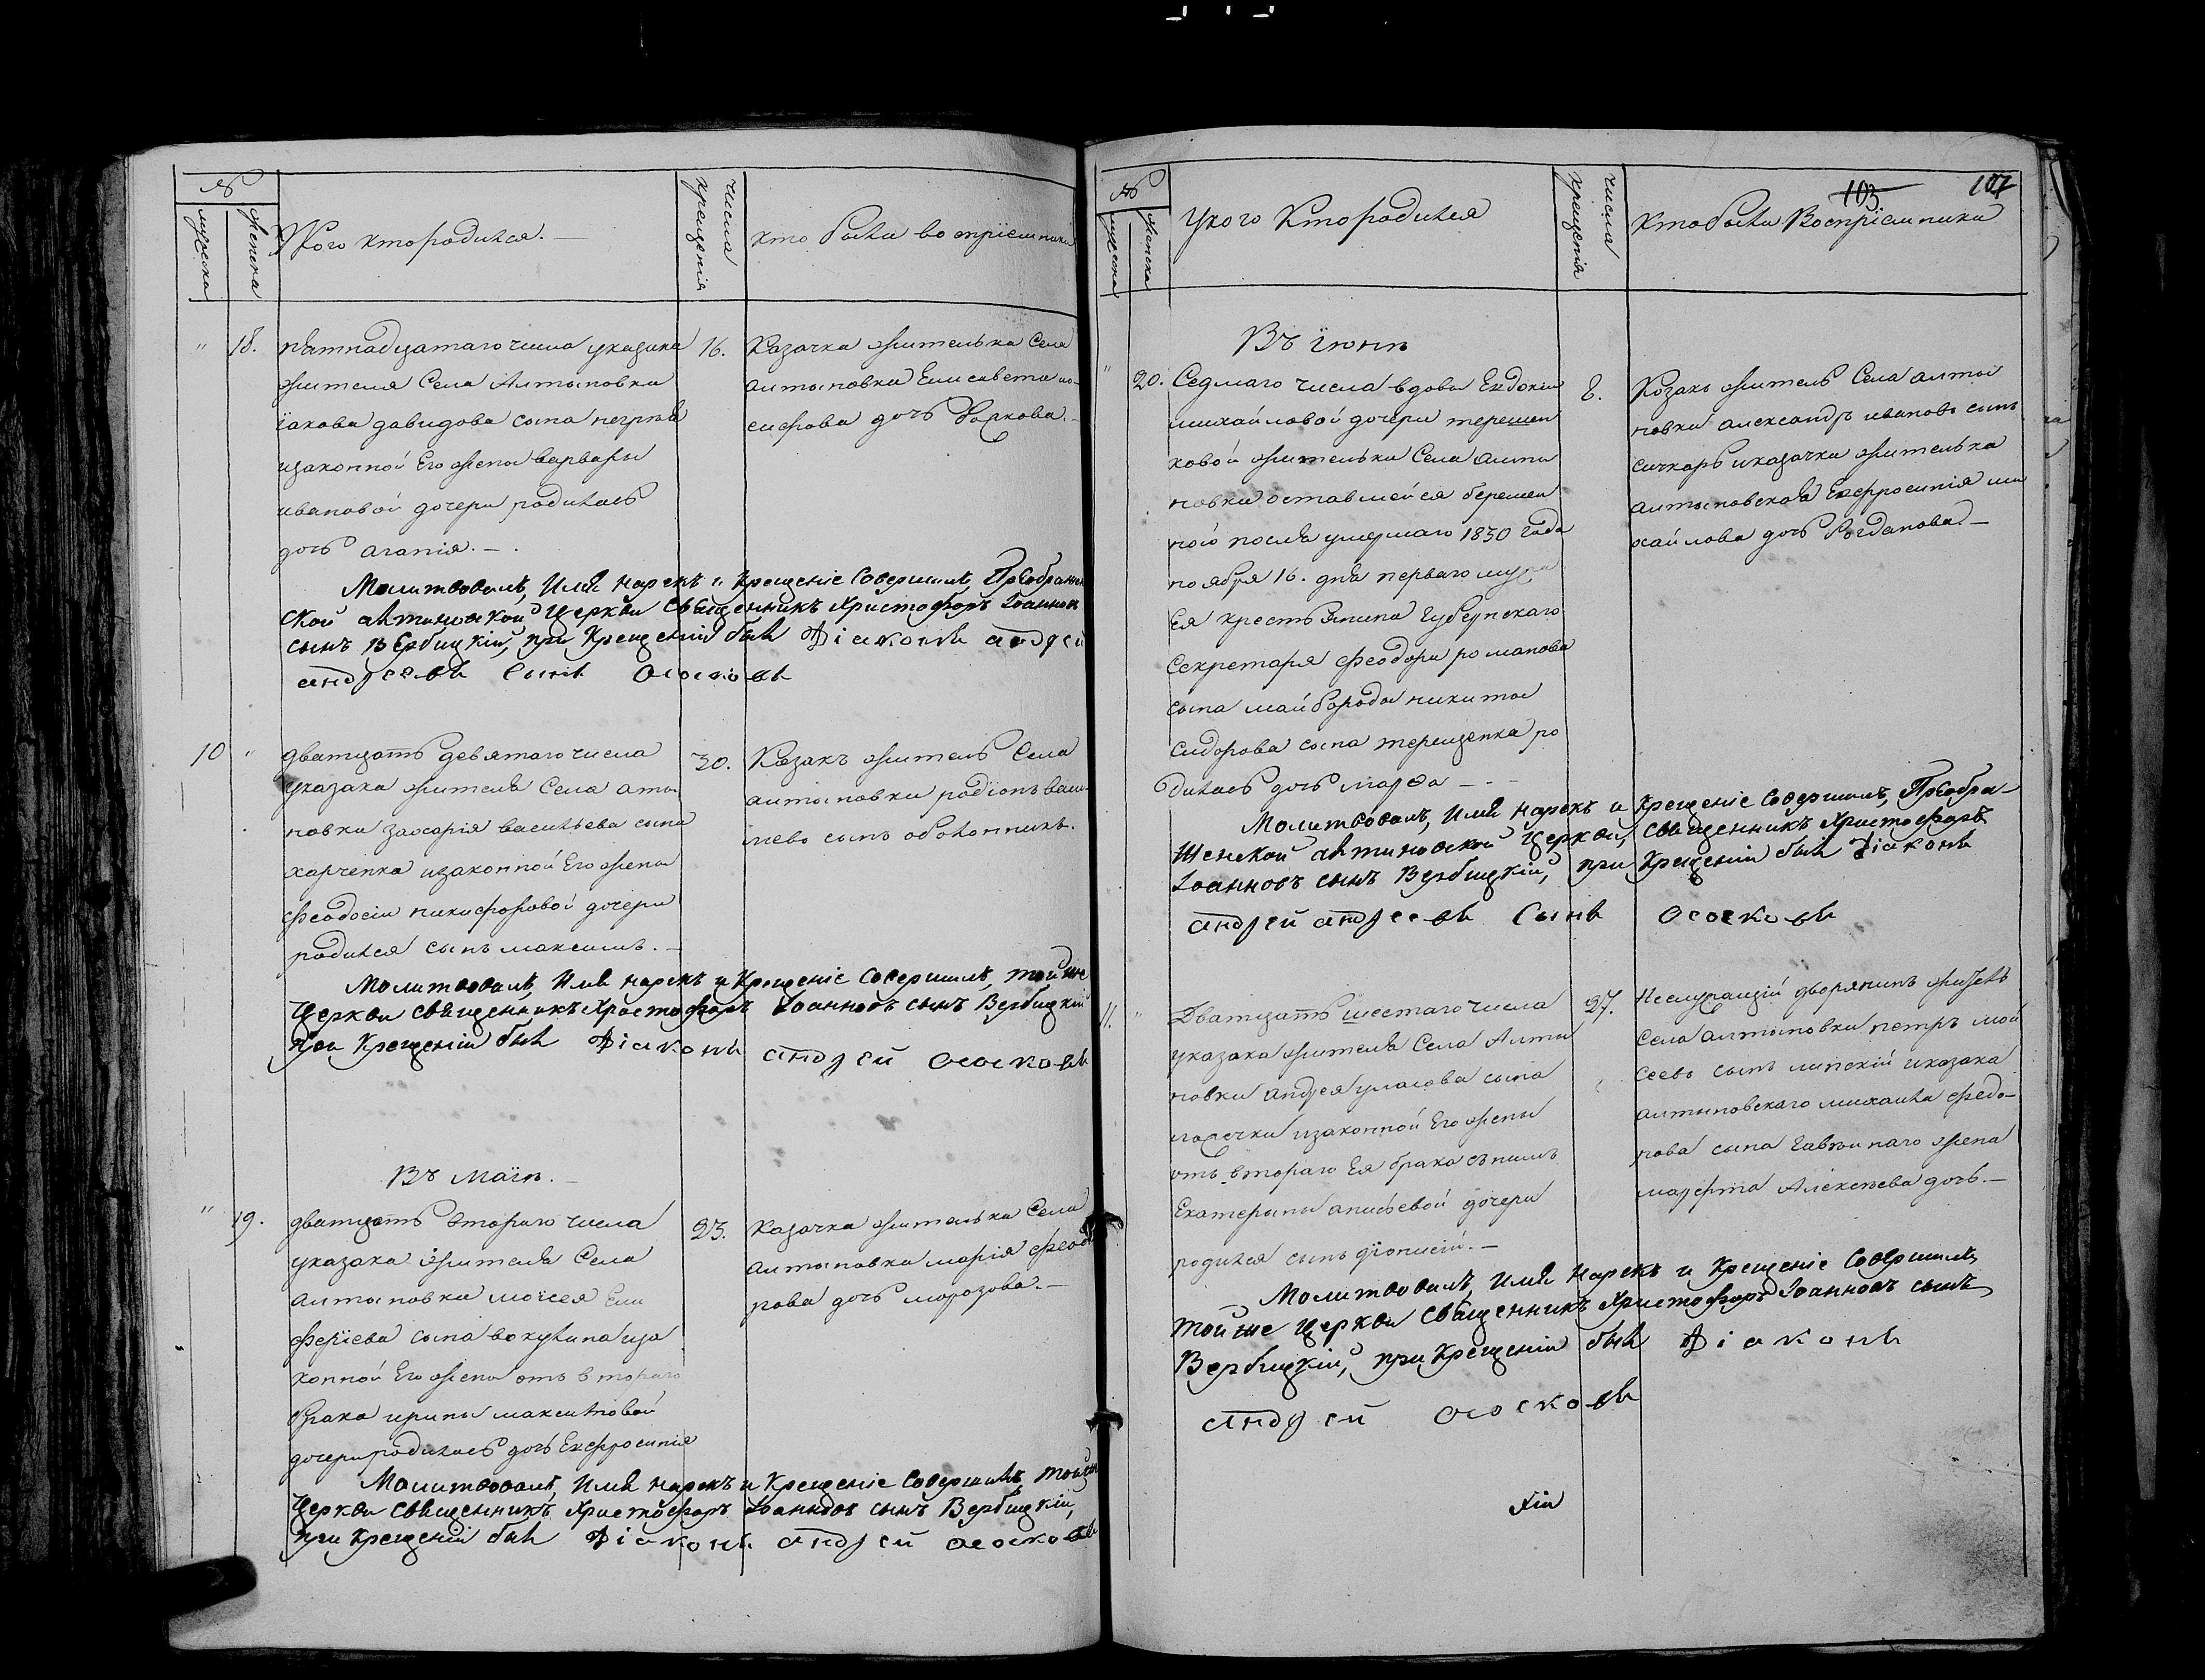 №
мужеска
женска
У кого кто родился. —
числа
крещенія
кто были воспріемники
" 18.
пятнадцатаго числа у казака
жителя Села Алтыновки
іакова давидова сына
и законной Его жены варвары
ивановой дочери родилась
дочь агапія. —
16.
Казачка жителька Села
алтыновки Елисавета ио-
сифова дочь
Молитвовалъ, Имя нарекъ и Крещеніе Совершилъ, Преображен
ской алтиновской Церкви Священникъ Христофоръ Іоаннов
сынъ Вербицкій, при Крещеніи былъ Діаконъ андрей
андреевъ Сынъ Ососковъ
10 "
дватцать девятаго числа
у казака жителя Села алты
новки захарія васильева сына
харченка и законной Его жены
феодосіи никифоровой дочери
родился сынъ максимъ. —
30.
Казакъ житель Села
алтыновки родіонъ васи
лиевъ сынъ оболонникъ.
Молитвовалъ, Имя нарекъ и Крещеніе Совершилъ, тойже
Церкви Священникъ Христофоръ Іоанновъ сынъ Вербицкій
при Крещеніи былъ Діаконъ андрей Ососковъ
Въ маіи. —
" 19.
дватцать втораго числа
у казака жителя Села
алтыновки моисея Ели
феріева сына вокулина и за
конной Его жены отъ втораго
брака ирины максимовой
дочери родилась дочь Евфросинія
23.
Казачка жителька Села
алтыновки марія феодо
рова дочь морозова. —
Молитвовалъ, Имя нарекъ и Крещеніе Совершилъ, тойже
Церкви Священникъ Христофоръ Іоанновъ сынъ Вербицкій,
при Крещеніи былъ Діаконъ андрей Ососковъ
103 107
№
мужеска
женска
У кого Кто родился
числа
крещенія
Кто были Воспріемники
Въ іюнѣ
" 20.
Седмаго числа вдовы Евдокіи
михайловой дочери терещен
ковой жительки Села алты
новки оставшейся беремен
ной послѣ умершаго 1830 года
ноября 16. дня перваго мужа
Ея крестьянина Губернскаго
Секретаря феодора романова
сына майбороды никиты
Сидорова сына терещенка ро
дилась дочь марѳа — . —
8.
Козакъ житель Села алты
новки александръ ивановъ сынъ
сичкарь и казачка жителька
алтыновская Евфросинія ми
хайлова дочь Рогданова. —
Молитвовалъ, Имя нарекъ и Крещеніе Совершилъ, Преобра-
женской алтиновской Церкви, священникъ Христофоръ
Іоанновъ сынъ Вербицкій, при Крещеніи былъ діаконъ
андрей андреевъ Сынъ Ососковъ
11. "
Дватцать шестаго числа
у казака жителя Села Алты
новки андрея сына
и законной Его жены
отъ втораго Ея брака съ нимъ
Екатерины дочери
родился сынъ діонисій. —
27.
Неслужащій дворянинъ житель
Села алтыновки петръ мой
сеевъ сынъ липскій и казака
алтыновскаго михаила федо-
рова сына жена
марфта Алексеева дочь. —
Молитвовалъ, Имя нарекъ и Крещеніе Совершилъ,
тойже Церкви Священникъ Христофоръ Іоанновъ сынъ
Вербицкій, при Крещеніи былъ Діаконъ
андрей Ососковъ